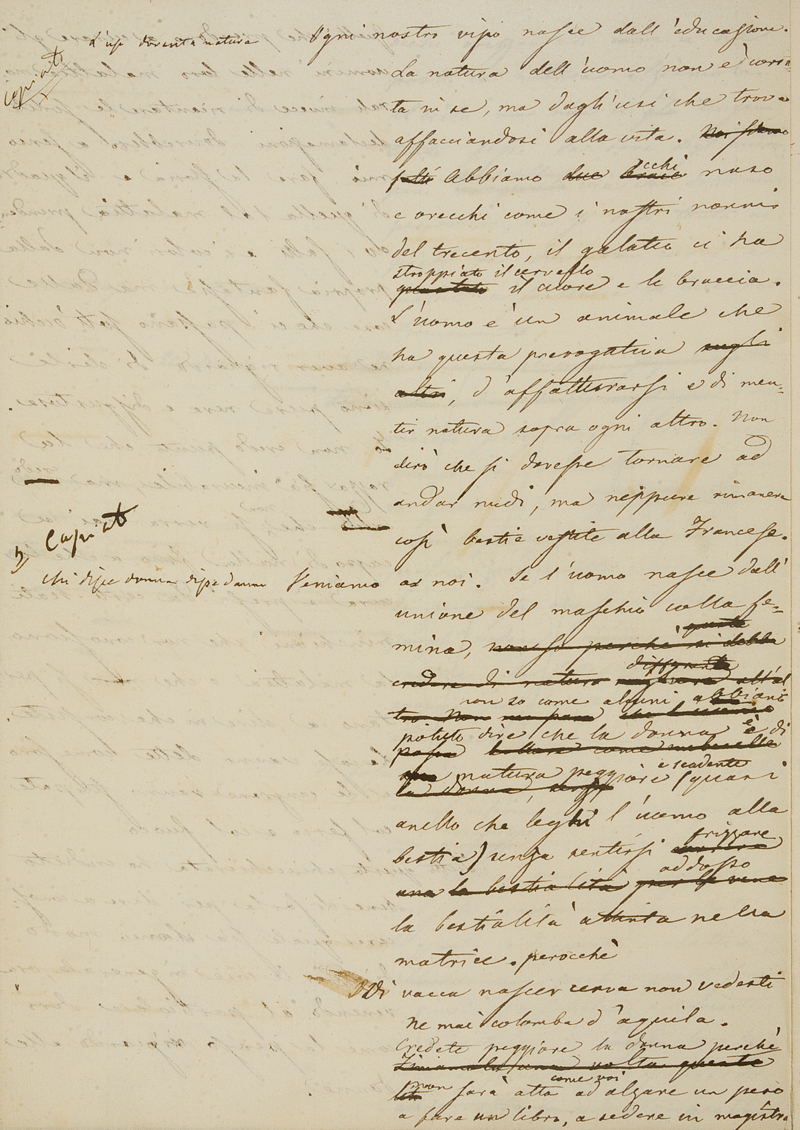 L'uso doventa natura
Copiato
Ogni nostro vizio nasce dall'educazione.
La natura dell'uomo non è corrot=
ta in se, ma dagli usi che trova
affacciandosi alla vita.
Abbiamo due occhi naso
e orecchi come i nostri nonni
del trecento, il galateo ci ha
stroppiato il cervello
il cuore e le braccia.
L'uomo è un animale che
ha questa prerogativa sugli
altri, d'affatturarsi e di men=
tir natura sopra ogni altro. Non
dirò che si dovesse tornare ad
andar nudi, ma neppure rimanere
così bestie vestite alla Francese.
Copiato
Chi disse donna disse danno
Veniamo a noi. Se l'uomo nasce dall'
unione del maschio colla fe=
mina, non so perchè si debba
credere di natura
non so come alcuni abbiano
potuto dire che la donna è di
natura peggiore e scadente (quasi
anello che leghi l'uomo alla
bestia) senza sentirsi frizzare
addosso
la bestialità attinta nella
matrice. perocchè
Di vacca nascer cerva non vedesti
Ne mai colomba d'aquila.
Credete peggiore la donna perchè
non sarà atta come voi ad alzare un peso
a fare un libro, a sedere in magistra